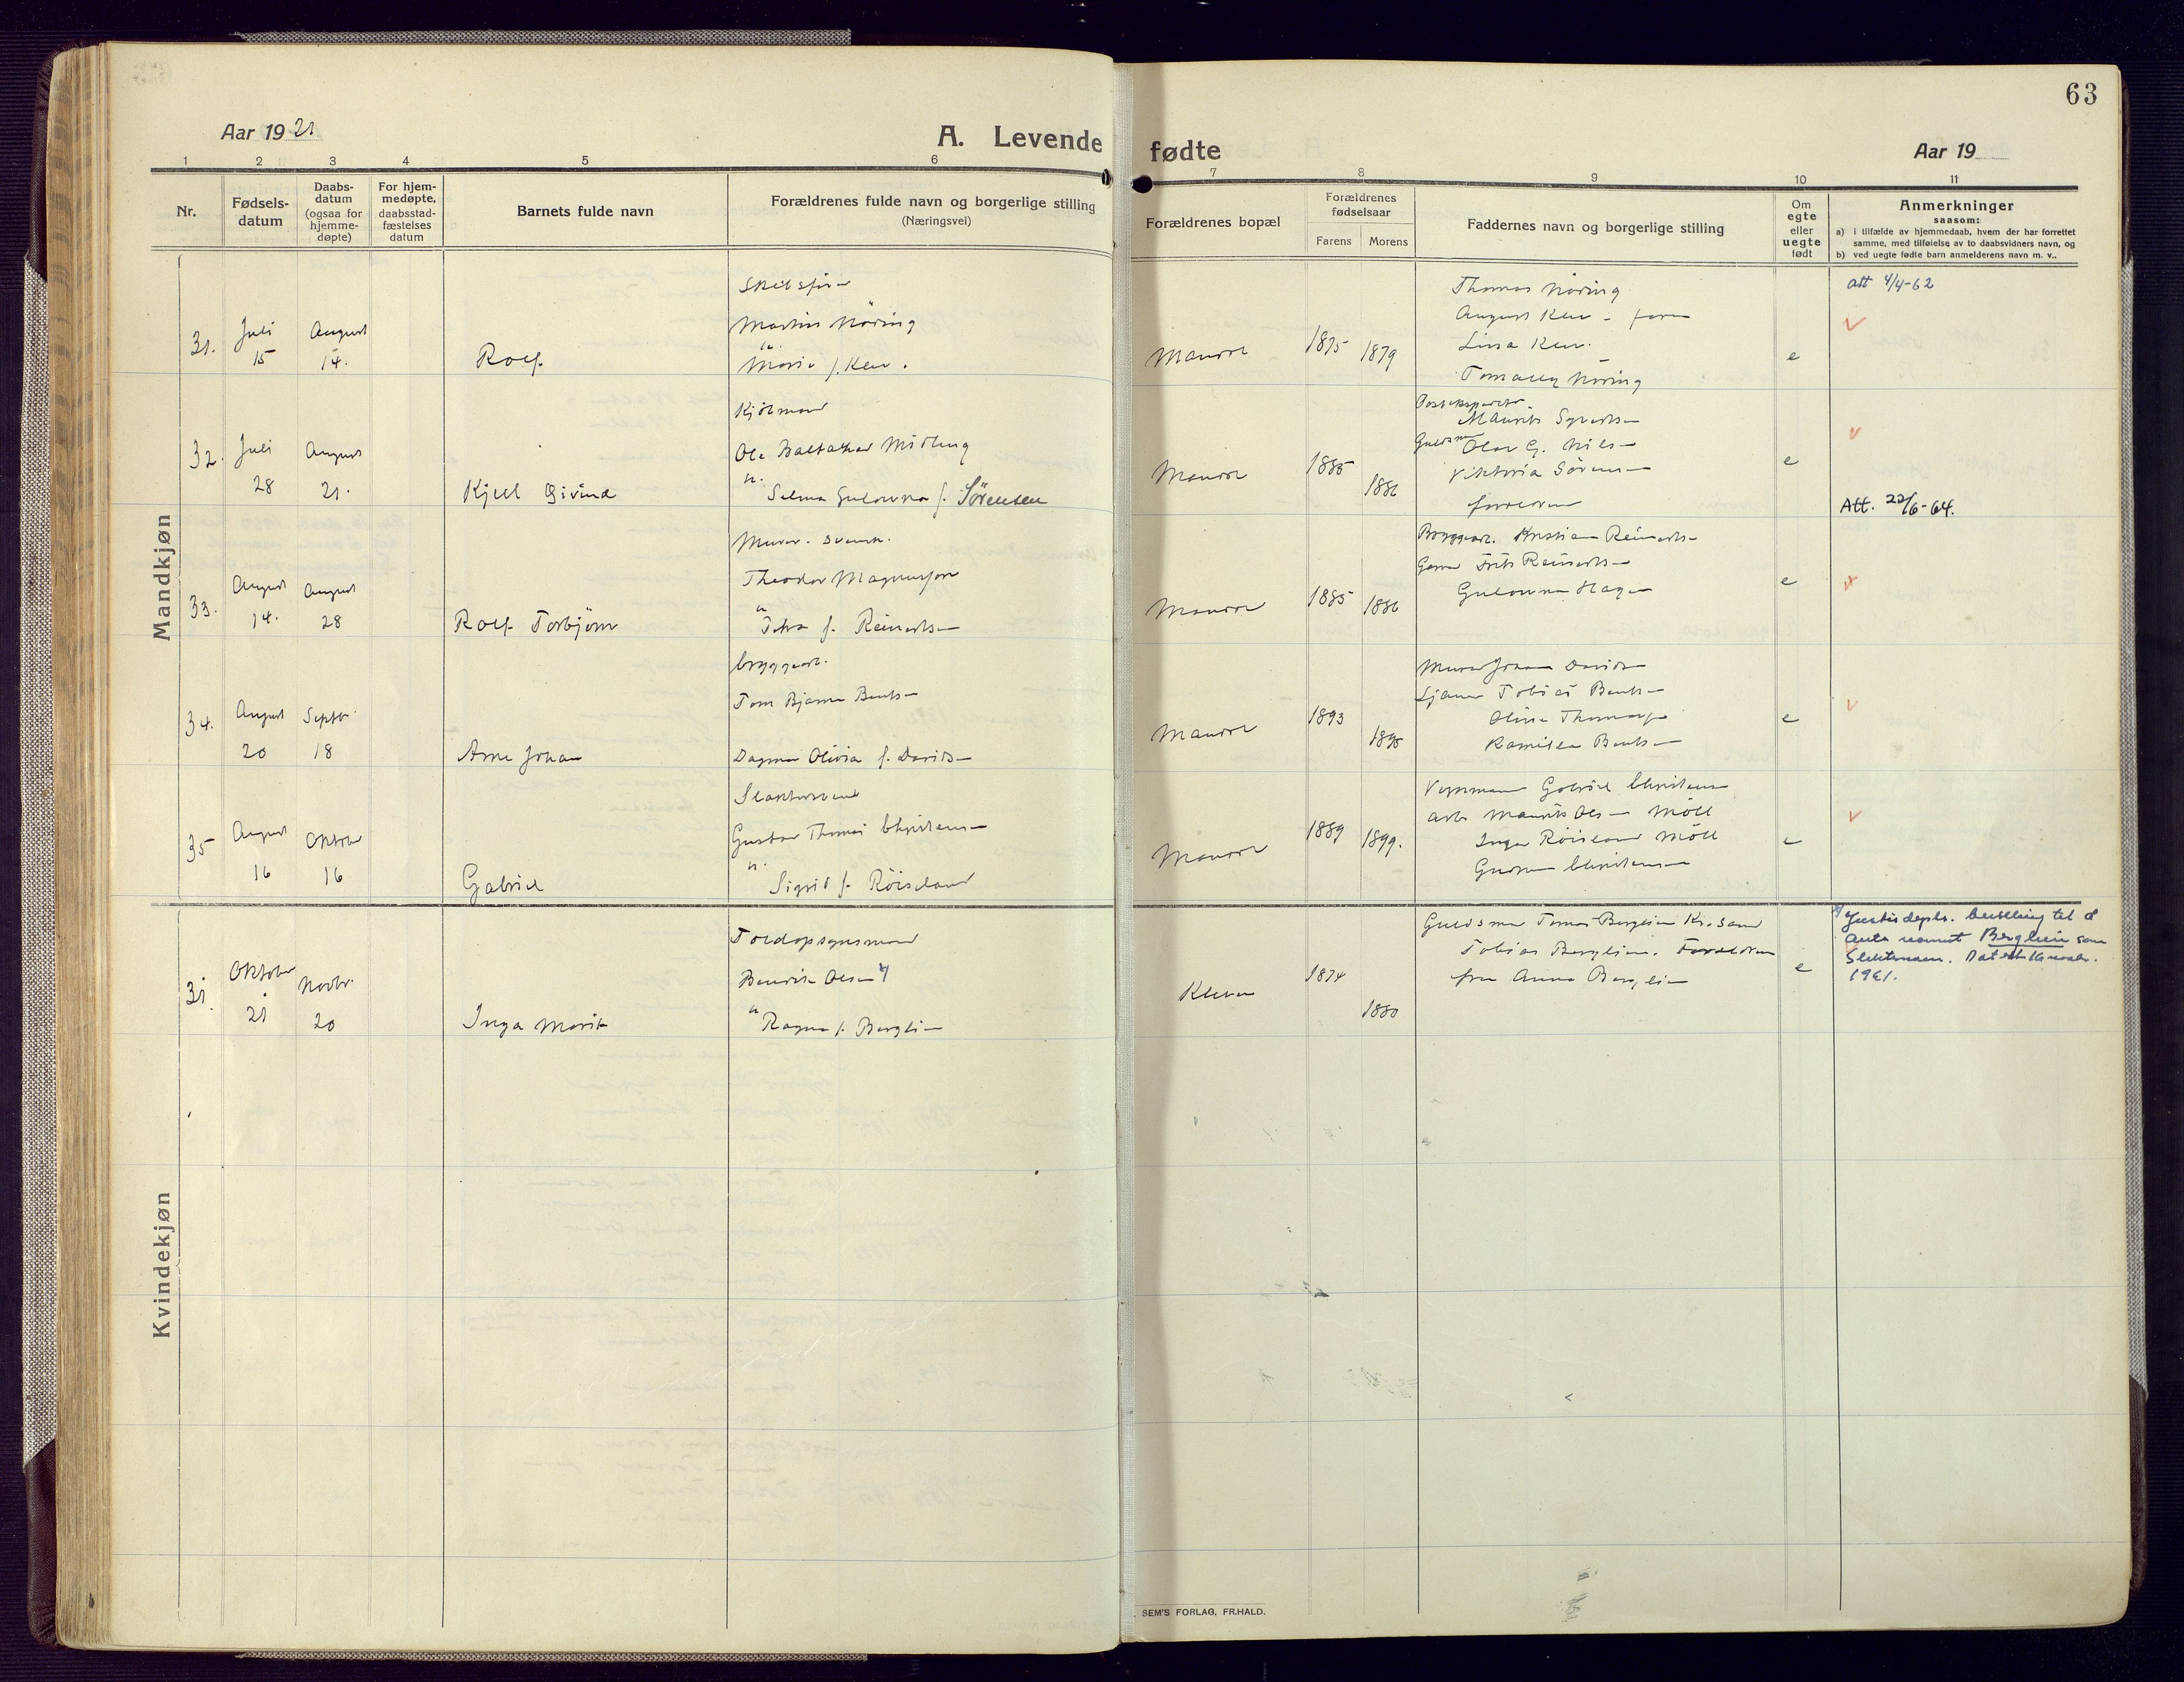 63
Aar 1921
A. Levende fødte
Aar 19
1 2 3 4 5 6 7 8 9 10 11
Nr.
Fødsels-
datum
Daabs-
datum
(ogsaa for
hjemme-
døpte)
For hjem-
medøpte,
daabsstad-
fæstelses
datum
Barnets fulde navn
Forældrenes fulde navn og borgerlige stilling
(Næringsvei)
Forældrenes bopæl
Forældrenes
fødselsaar
Farens Morens
Faddernes navn og borgerlige stilling
Om
egte
eller
uegte
født
Anmerkninger
saasom:
a) i tilfælde av hjemmedaab, hvem der har forrettet
samme, med tilføielse av to daabsvidners navn, og
b) ved uegte fødte barn anmelderens navn m. v..
Mandkjøn
31.
Juli
15
August
14.
Rolf
Martin Nöring
Marie f. Kew.
1875
1879
Thomas Nöring
August Kew
Lissa Kew.
Nöring
e
att 4/4-62
32.
Juli
28
August
21.
Kjell Eivind
Ole Baltazar Midling
Selma Gulowna f. Sörensen
1885
1886
Maurits Syvertsen
Olav G. Nilsen
Viktoria Sörensen
e
Att. 22/6-64.
33.
August
14.
August
28
Rolf Torbjörn
Murer. svensk.
Theodor Magnussen
f. Reinertsen
1885
1886
Bryggearb. Kristian Reinertsen
Frits Reinertsen
Gulowna Hagen
e
34.
August
20
Septbr.
18
Arne Johan
bryggearb.
Tom Bjarne Bentsen
Dagmar Olivia f. Davidsen
1893
1895
Murer Johan Davidsen
Tobias Bentsen
Kamilla Bentsen
e
35
August
16
Oktober
16
Gabriel
Gustav Thomas Christensen
Sigrid f. Röiseland
1889
1899.
Gabriel Christensen
arb. Maurits Olsen Möll
Inga Röiseland Möll
Gudrun Christensen
e
Kvindekjøn
31.
Oktober
21
Novbr.
20
Inga Marit
Toldopsynsmand
Bendik Olsen x)
Ragna f. Berglien
Kleven
1874
1880
Guldsmed Tomas Berglien Kr.sand
Tobias Berglien. Forældrene
fru Anna Berglien
e
x) Justisdepts. bevilling til å
anta navnet Berglien som
slektsnavn. Datert 16 novbr.
1921.
SEM'S FORLAG, FR.HALD.